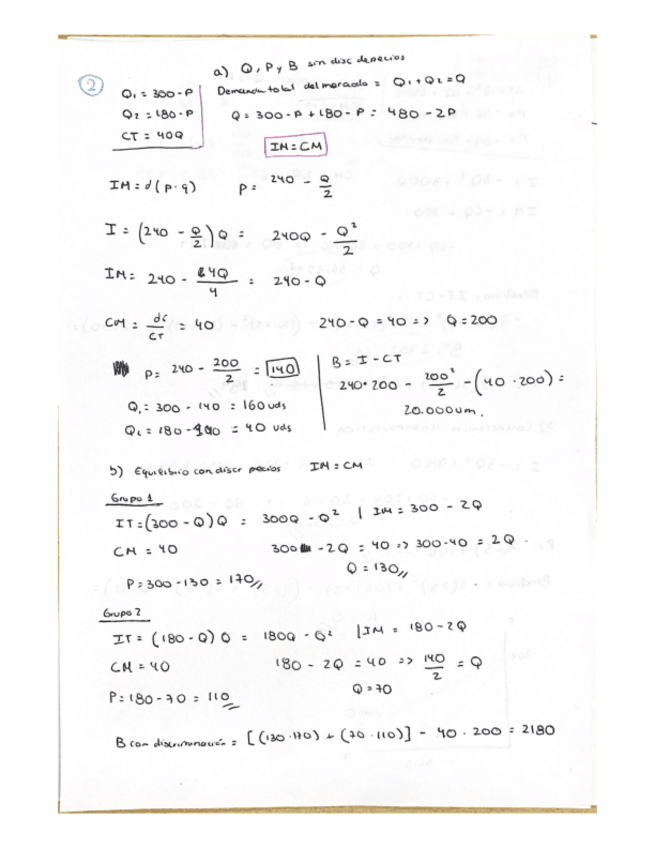 2
a) Q, P y B sin disc de precios
Q1 = 300-P
Demanda total del mercado = Q1+Q2=Q
Q2 = 180-P
Q = 300-P+180-P = 480-2P
CT = 40Q
IM=CM
IM=d(p·q)
P= 240 - Q/2
I = (240 - Q/2)Q = 240Q - Q²/2
IM= 240 - 4Q/4 = 240-Q
CM = dc/CT = 40
240-Q=40 => Q=200
P= 240 - 200/2 = 140
B= I - CT
240·200 - 200²/2 - (40·200) =
20.000um.
Q1= 300 - 140 = 160 uds
Q2 = 180-140 = 40 uds
b) Equilibrio con discr precios IM=CM
Grupo 1
IT=(300-Q)Q = 300Q-Q² | IM = 300 - 2Q
CM = 40
300 -2Q = 40 => 300-40 = 2Q
Q= 130
P=300-130=170
Grupo 2
IT= (180-Q)Q = 180Q - Q² | IM = 180-2Q
CM=40
180 - 2Q = 40 => 140/2 = Q
Q=70
P=180-70=110
B con discriminación = [(130·170) + (70·110)] - 40·200 = 2180